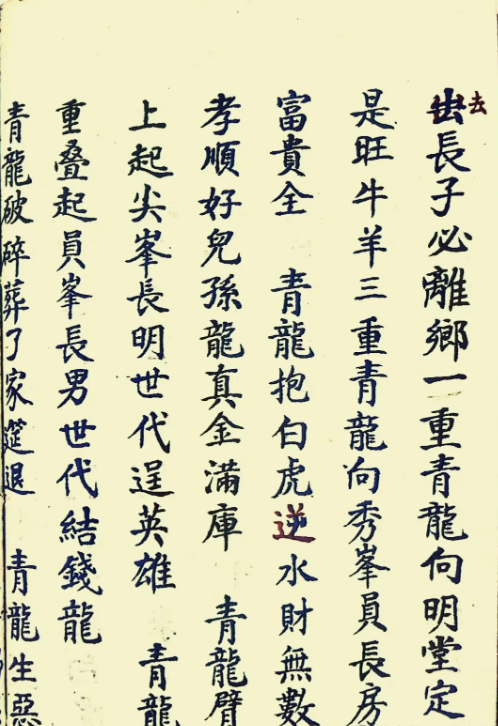 去長子必離鄉一重青龍向明堂定
是旺牛羊三重青龍向秀峯員長房
富貴全 青龍抱白虎逆水財無數
孝順好兒孫龍真金滿庫 青龍臂
上起尖峯長明世代逞英雄 青龍
重疊起員峯長男世代結錢龍
青龍破碎葬了家筵退 青龍生惡